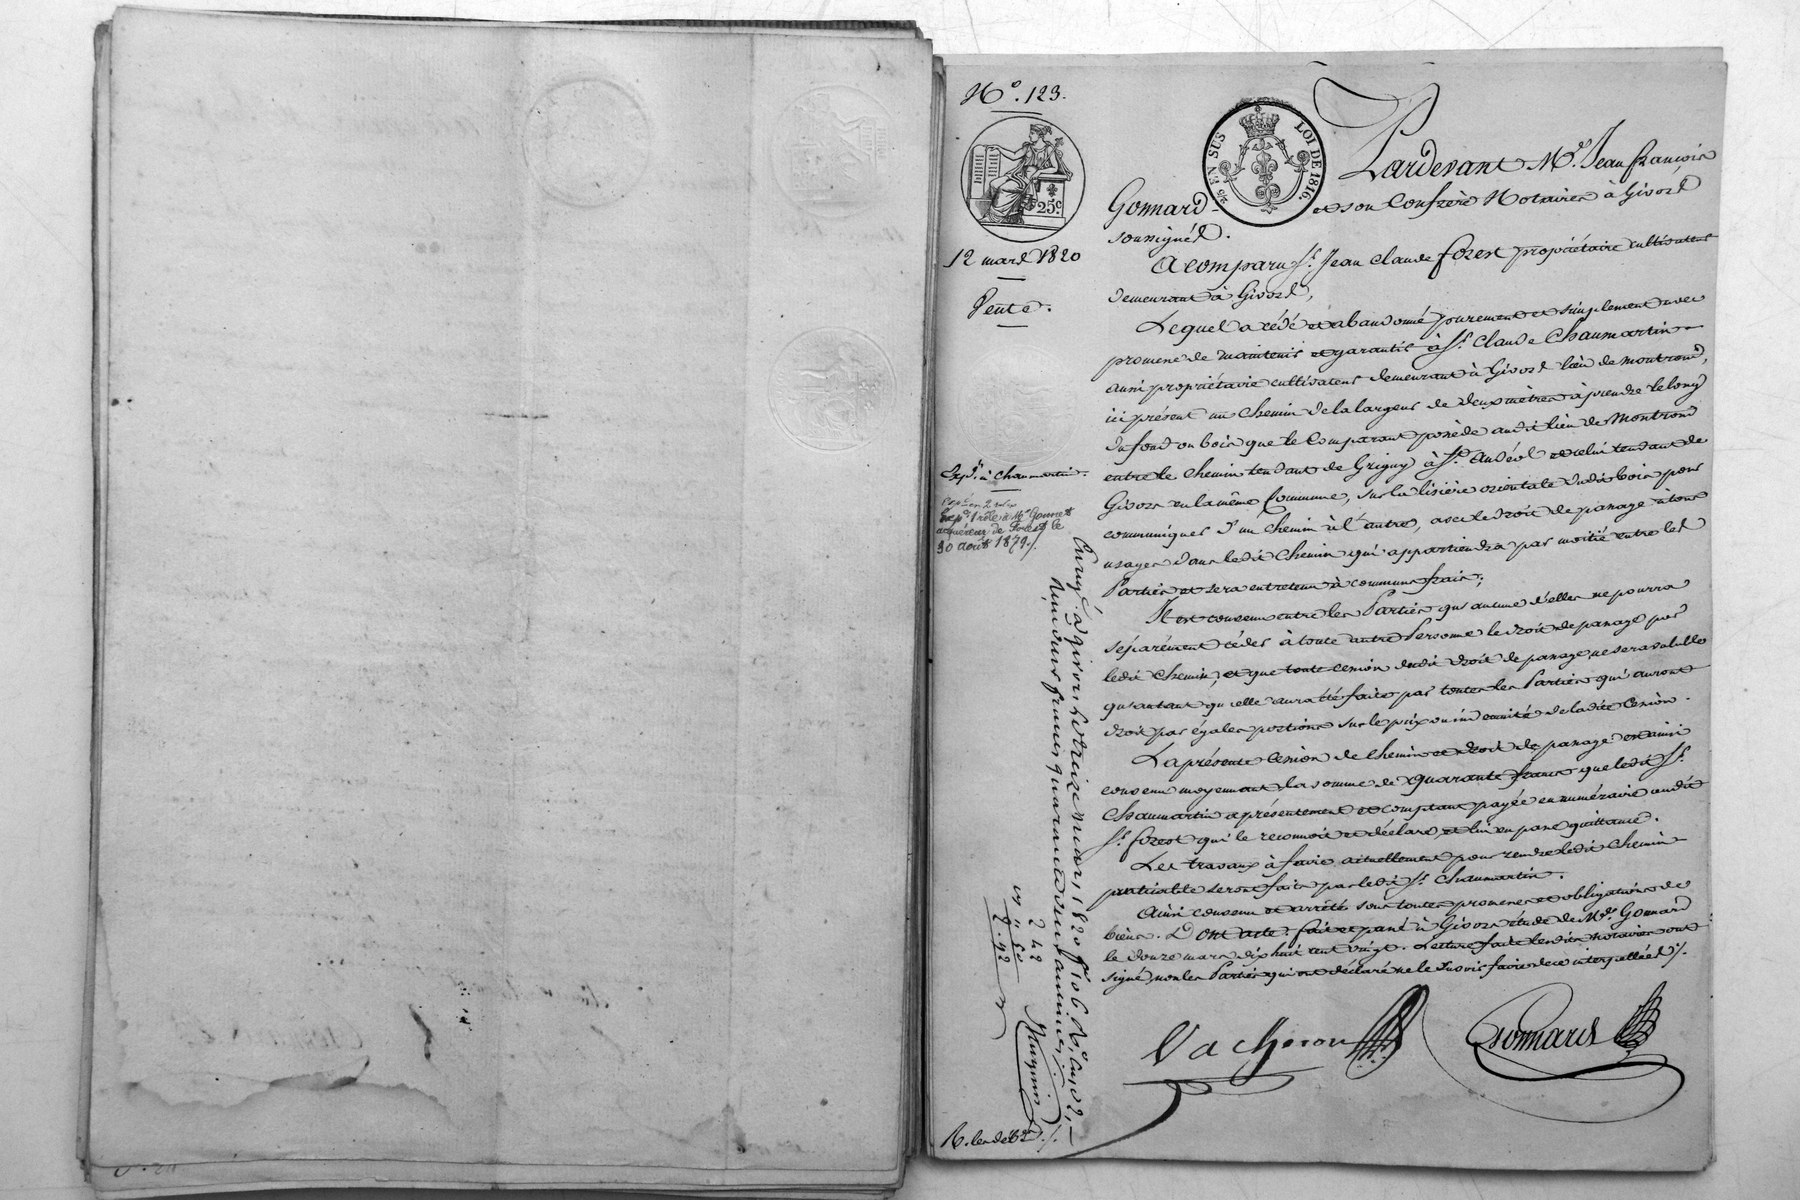 N.º 123.
25 EN SUS
LOI DE 1816.
25 c.
12 mars 1820
Vente.
Pardevant M.e Jean françois
Gonnard et son Confrère Notaires à Givors
soussignés.
A comparu S.r Jean claude forest propriétaire cultivateur
demeurant à Givors,
Lequel a cédé et abandonné purement et simplement avec
promesse de maintenir et garantir à S.r Claude Chaumartin
aussi propriétaire cultivateur demeurant à Givors lieu de montrond,
ici présent un chemin de la largeur de deux mètres à prendre le long
du fond ou bois que le Comparant possède audit lieu de Montrond
entre le chemin tendant de Grigny à S.t Andéol et celui tendant de
Givors en la même Commune, sur la lisière orientale dudit bois pour
communiquer d'un chemin à l'autre, avec le droit de passage à tous
usages dans ledit chemin qui appartiendra par moitié entre les
Parties et sera entretenu à communs frais;
Il est convenu entre les Parties qu'aucune d'elles ne pourra
séparément céder à toute autre Personne le droit de passage par
ledit chemin, et que toute cession dudit droit de passage ne sera valable
qu'autant qu'elle aura été faite par toutes les Parties qui auront
droit par égales portions sur le prix ou indemnité de ladite Cession.
La présente Cession de chemin et droit de passage est ainsi
convenu moyennant la somme de quarante francs que ledit S.r
Chaumartin a présentement et comptant payée en numéraire audit
S.r forest qui le reconnoit et déclare et lui en passe quittance.
Les travaux à faire actuellement pour rendre ledit chemin
praticable seront faits par ledit S.r Chaumartin.
Ainsi convenu et arrêté sous toutes promesses et obligations de
biens. Dont acte. fait et passé à Givors étude de M.e Gonnard
le douze mars dix huit cent vingt. Lecture faite lesdits notaires ont
signé, non les Parties qui ont déclaré ne le savoir faire de ce interpellées ./.
Vacheron
Gonnard
Exp.on à chaumartin.
Exp. 1 rôle à M.r Gonnet
acquéreur de Forest le
30 août 1879./.
Enreg.é à givors le treize mars 1820 f.o 106. R.o C.es 02,
Reçu deux francs quarante deux centimes.
2 42
" 50
2. 92